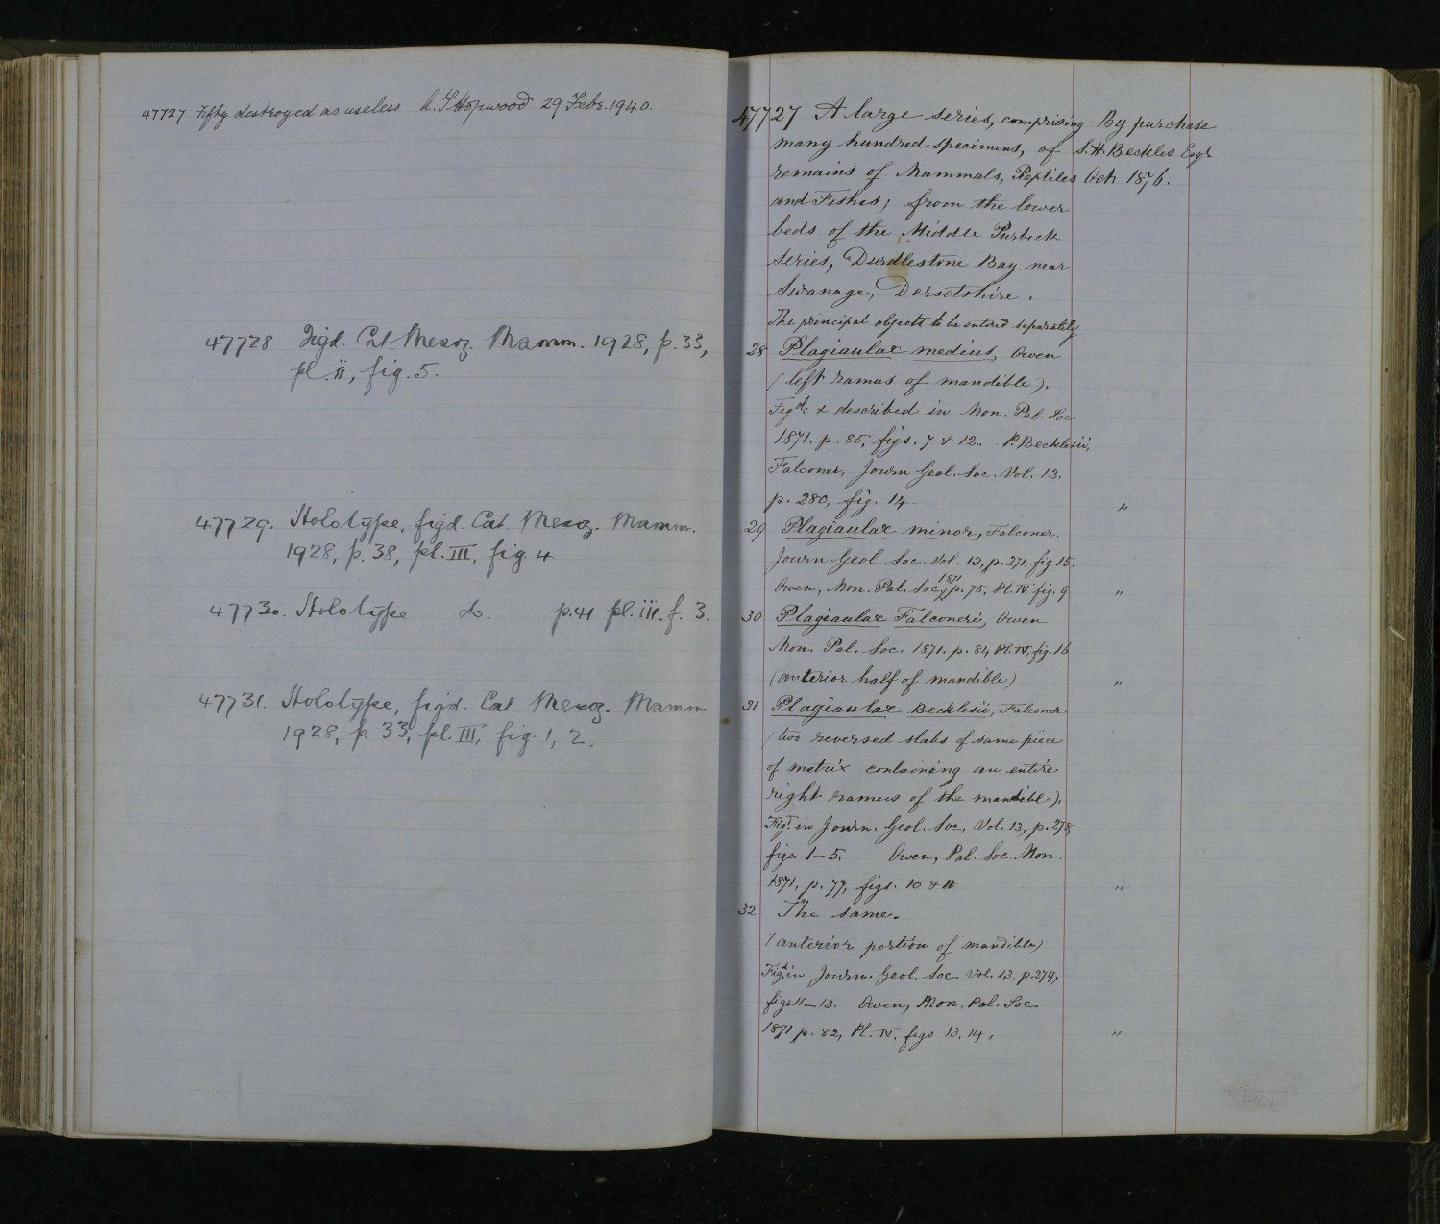 47727 Fifty destroyed as useless A. T. Hopwood 29 Febr. 1940.
47728 Figd. Cat Mesoz. Mamm. 1928, p. 33,
pl. ii, fig. 5.
47729. Holotype, figd. Cat. Mesoz. Mamm.
1928, p. 38, pl. III, fig. 4
47730. Holotype do. p. 41 pl. iii. f. 3.
47731. Holotype, figd. Cat Mesoz. Mamm
1928, p. 33, pl. III, fig. 1, 2.
47727 A large series, comprising By purchase
many hundred specimens, of S. H. Beckles Esqr
remains of Mammals, Reptiles Oct 1876.
and Fishes; from the lower
beds of the Middle Purbeck
Series, Durdlestone Bay near
Swanage, Dorsetshire.
The principal objects to be entered separately
28 Plagiaulax medius, Owen
(left ramus of mandible).
Figd. & described in Mon. Pal. Soc
1871. p. 85, figs. 7 & 12. P. Becklesii,
Falconer, Journ Geol. Soc. Vol. 13.
p. 280, fig. 14 "
29 Plagiaulax minor, Falconer.
Journ Geol Soc. Vol. 13, p. 271 fig 15.
Owen, Mon. Pal. Soc, 1871 p. 75, Pl. IV fig. 9 "
30 Plagiaulax Falconeri, Owen
Mon. Pal. Soc. 1871. p. 84 Pl. IV, fig. 16
(anterior half of mandible) "
31 Plagiaulax Becklesii, Falconer
(two reversed slabs of same piece
of matrix containing an entire
right ramus of the mandible).
Figd. in Journ. Geol. Soc, Vol. 13, p. 278,
figs. 1–5. Owen, Pal. Soc. Mon.
1871, p. 77, figs. 10 & 11 "
32 The same.
(anterior portion of mandible)
Figd. in Journ. Geol. Soc. Vol. 13. p. 279,
figs. 11–13. Owen, Mon. Pal. Soc
1871 p. 82, Pl. IV. figs 13, 14. "